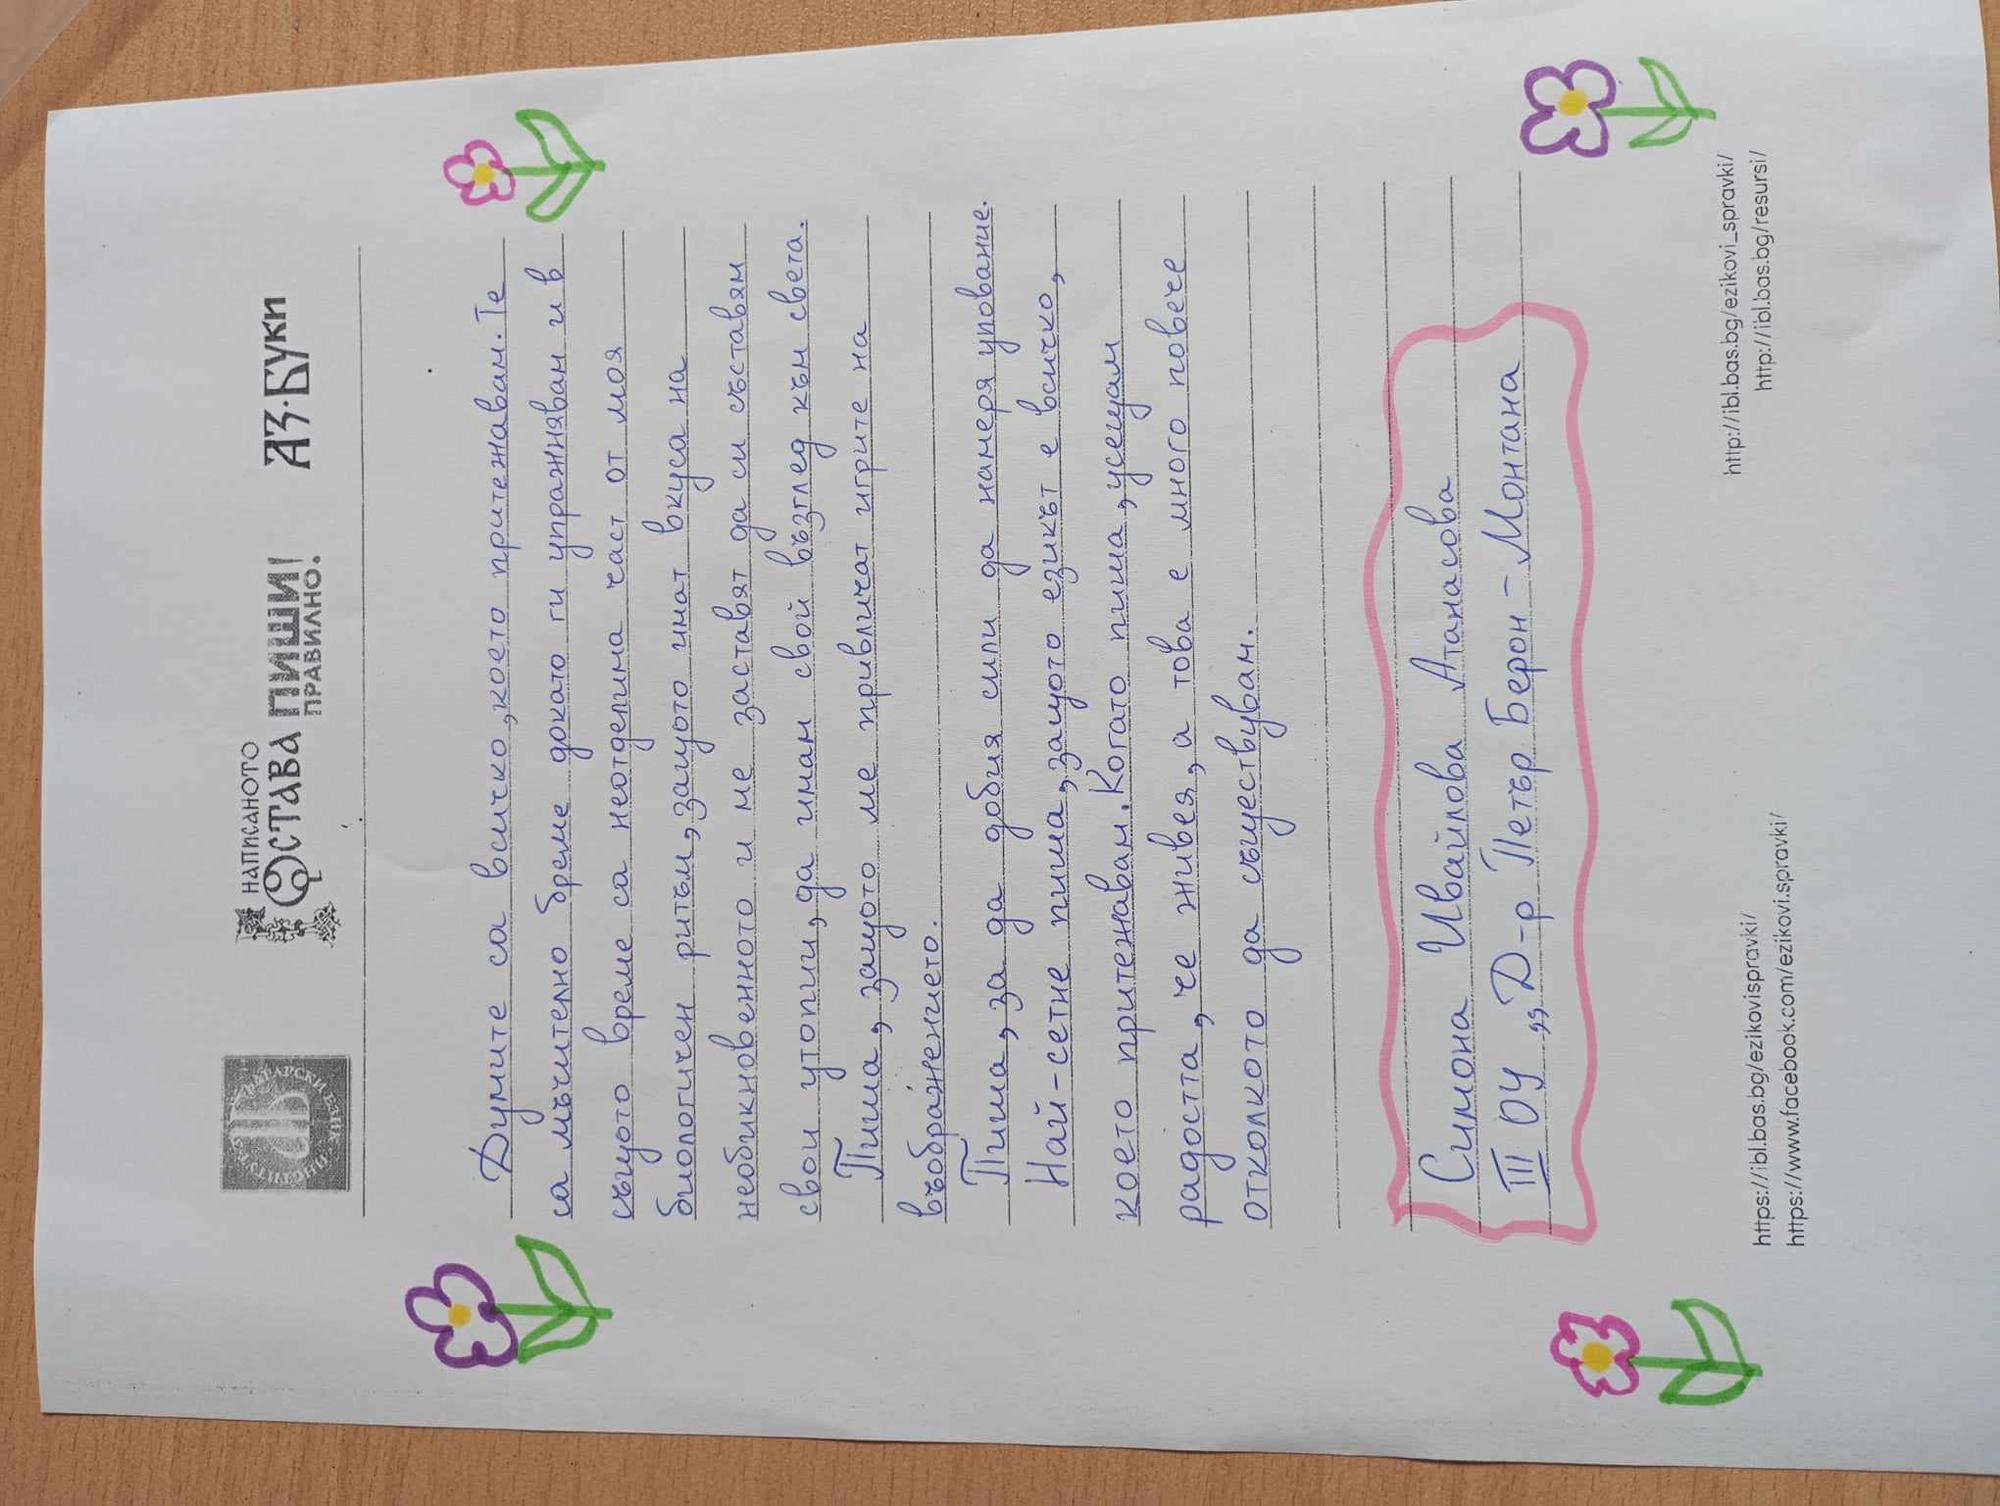 НАПИСАНОТО
ОСТАВА ПИШИ!
ПРАВИЛНО.
АЗ·БУКИ
Думите са всичко, което притежавам. Те
са мъчително бреме докато ги упражнявам и в
същото време са неотделима част от моя
биологичен ритъм, защото имат вкуса на
необикновенното и ме заставят да си съставям
свои утопии, да имам свой възглед към света.
Пиша, защото ме привличат игрите на
въображението.
Пиша, за да добия сили да намеря упование.
Най-сетне пиша, защото езикът е всичко,
което притежавам. Когато пиша, усещам
радостта, че живея, а това е много повече
отколкото да съществувам.
Симона Ивайлова Атанасова
III ОУ „Д-р Петър Берон - Монтана
https://ibl.bas.bg/ezikovispravki/
https://www.facebook.com/ezikovi.spravki/
http://ibl.bas.bg/ezikovi_spravki/
http://ibl.bas.bg/resursi/